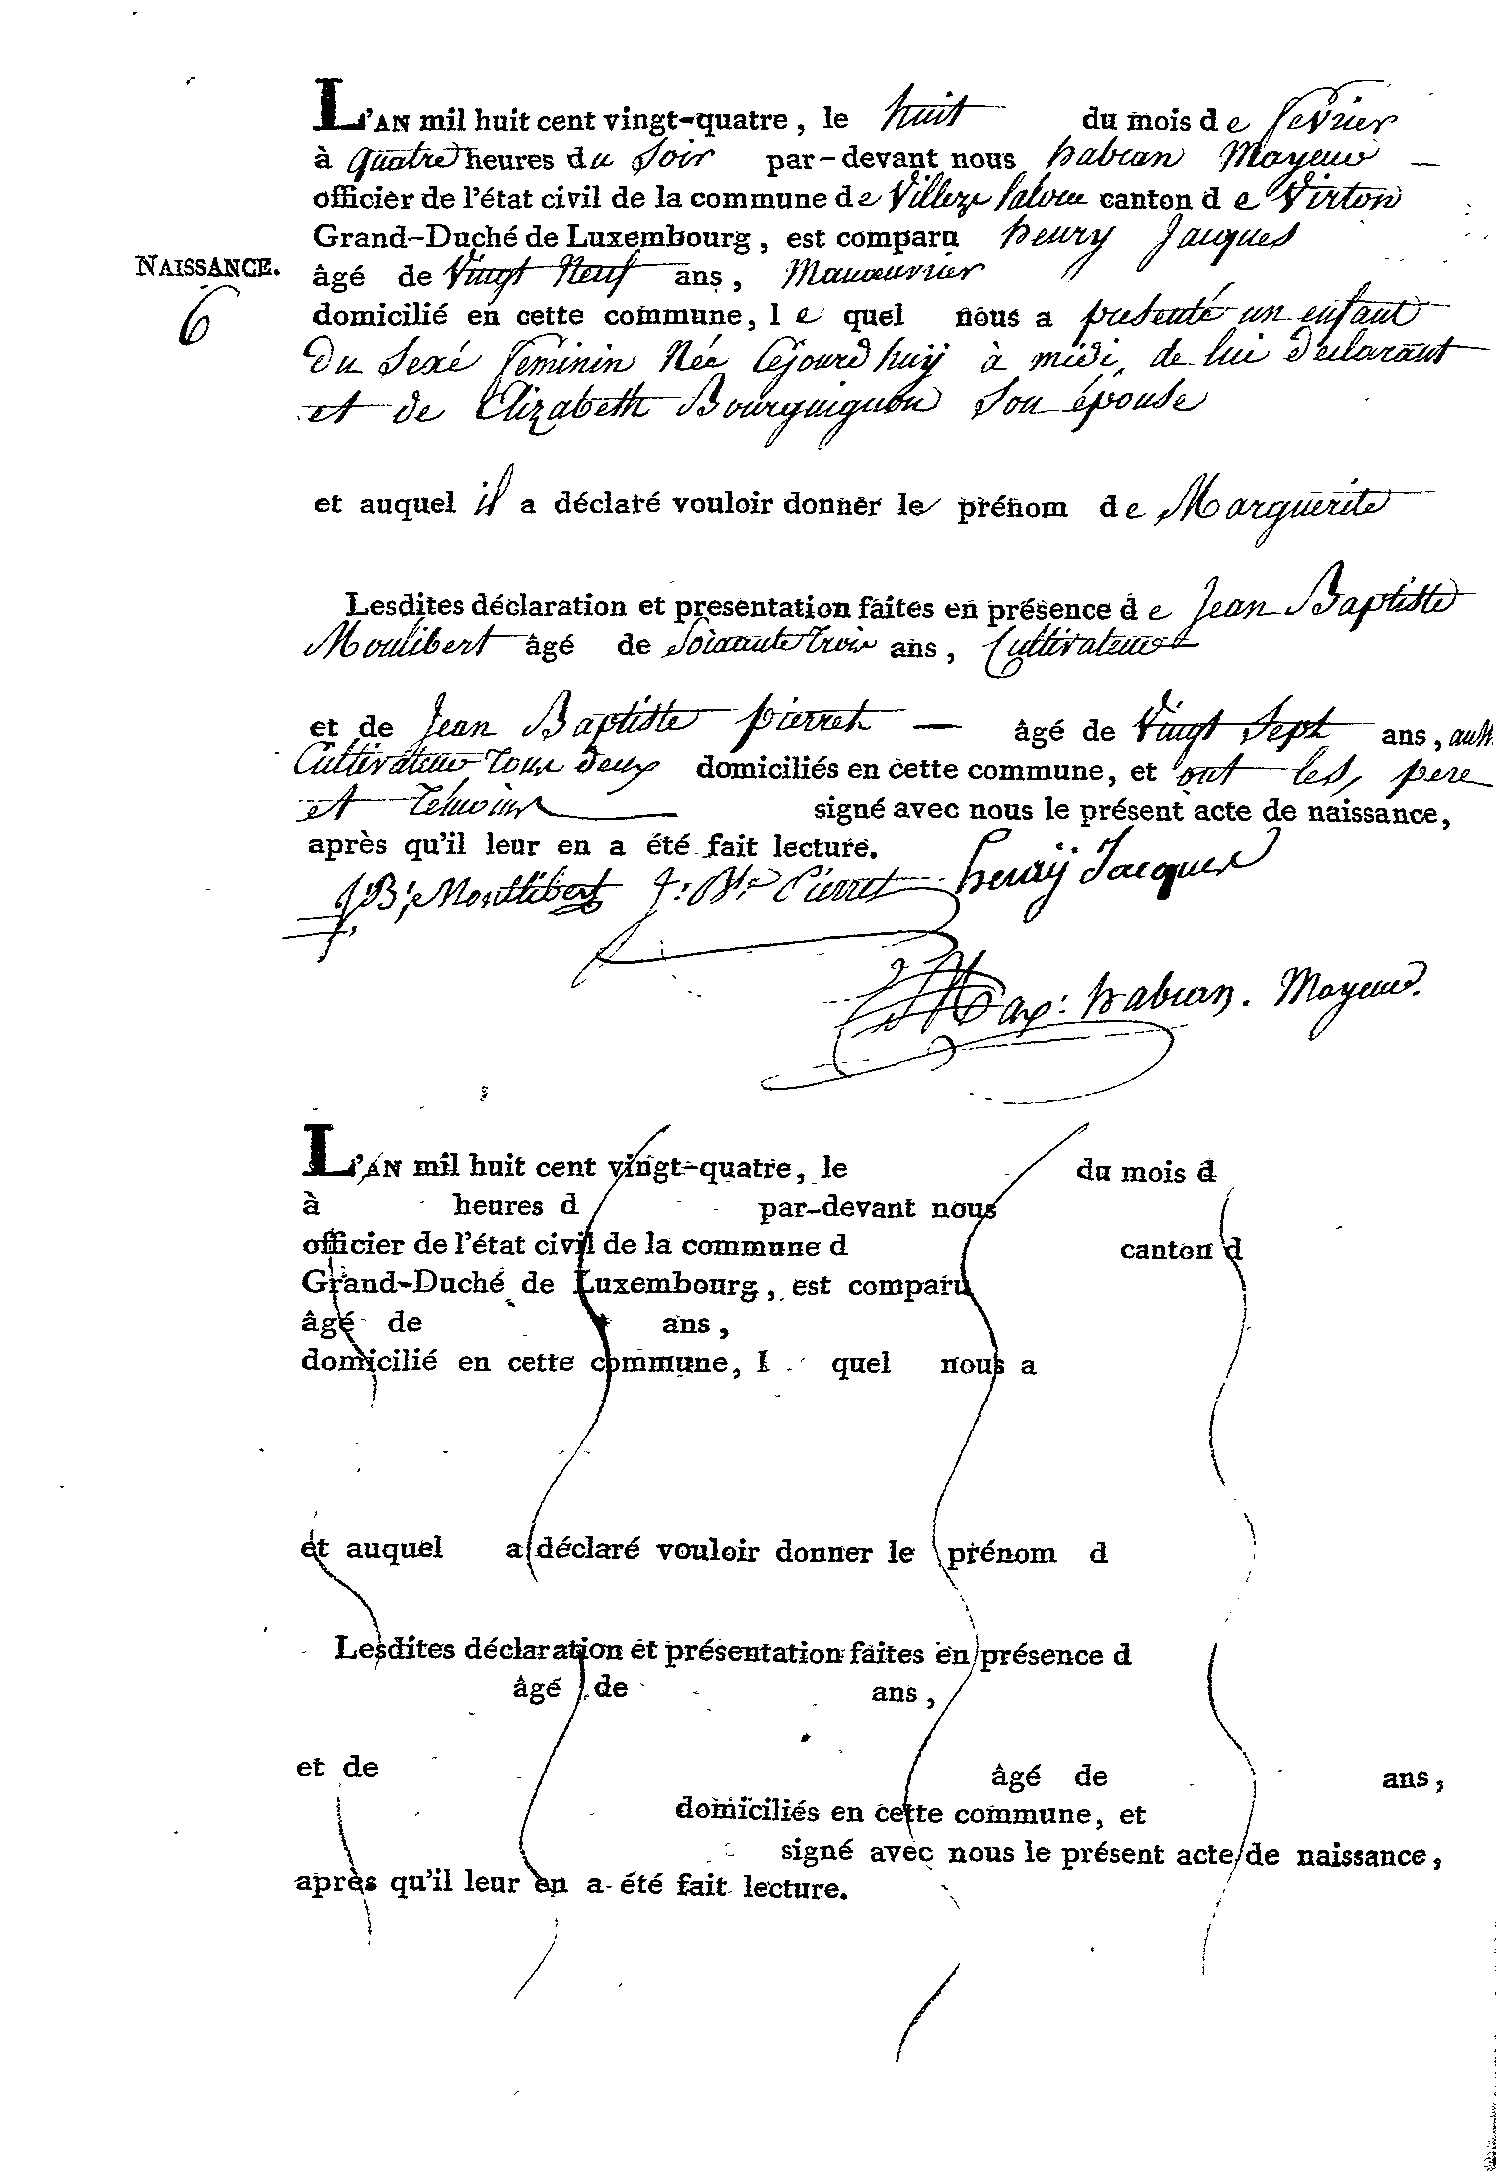 L'AN mil huit cent vingt-quatre, le huit du mois de fevrier
à quatre heures du soir par-devant nous habran Mayeur
officier de l'état civil de la commune de Villers laloue canton de Virton
Grand-Duché de Luxembourg, est comparu henry Jacques
NAISSANCE. âgé de Vingt Neuf ans, Manoeuvrier
6 domicilié en cette commune, le quel nous a présenté un enfant
Du Sexé feminin Née Cejourd'huy à midi, de lui Declarant
et de Elizabeth Bourguignon Son épouse
et auquel il a déclaré vouloir donner le prénom de Marguerite
Lesdites déclaration et presentation faites en présence de Jean Baptiste
Moulibert âgé de Soixante trois ans, Cultivateur
et de Jean Baptiste pierret âgé de Vingt Sept ans, aussi
Cultivateur tous deux domiciliés en cette commune, et ont les pere
et temoins signé avec nous le présent acte de naissance,
après qu'il leur en a été fait lecture. henry Jacques
J: Bte Pierret
habran. Mayeur.
L'AN mil huit cent vingt-quatre, le du mois d
à heures d par-devant nous
officier de l'état civil de la commune d canton d
Grand-Duché de Luxembourg, est comparu
âgé de ans,
domicilié en cette commune, l quel nous a
et auquel a déclaré vouloir donner le prénom d
Lesdites déclaration et présentation faites en présence d
âgé de ans,
et de âgé de ans,
domiciliés en cette commune, et
signé avec nous le présent acte de naissance,
après qu'il leur en a été fait lecture.